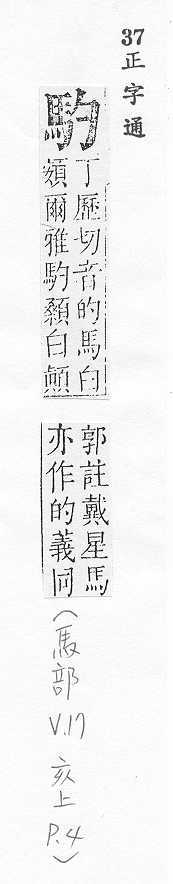 37正字通
馰
丁歷切音的馬白
額爾雅馰顙白顚
郭註戴星馬
亦作的義同
(馬部 V.17 亥上 P.4)